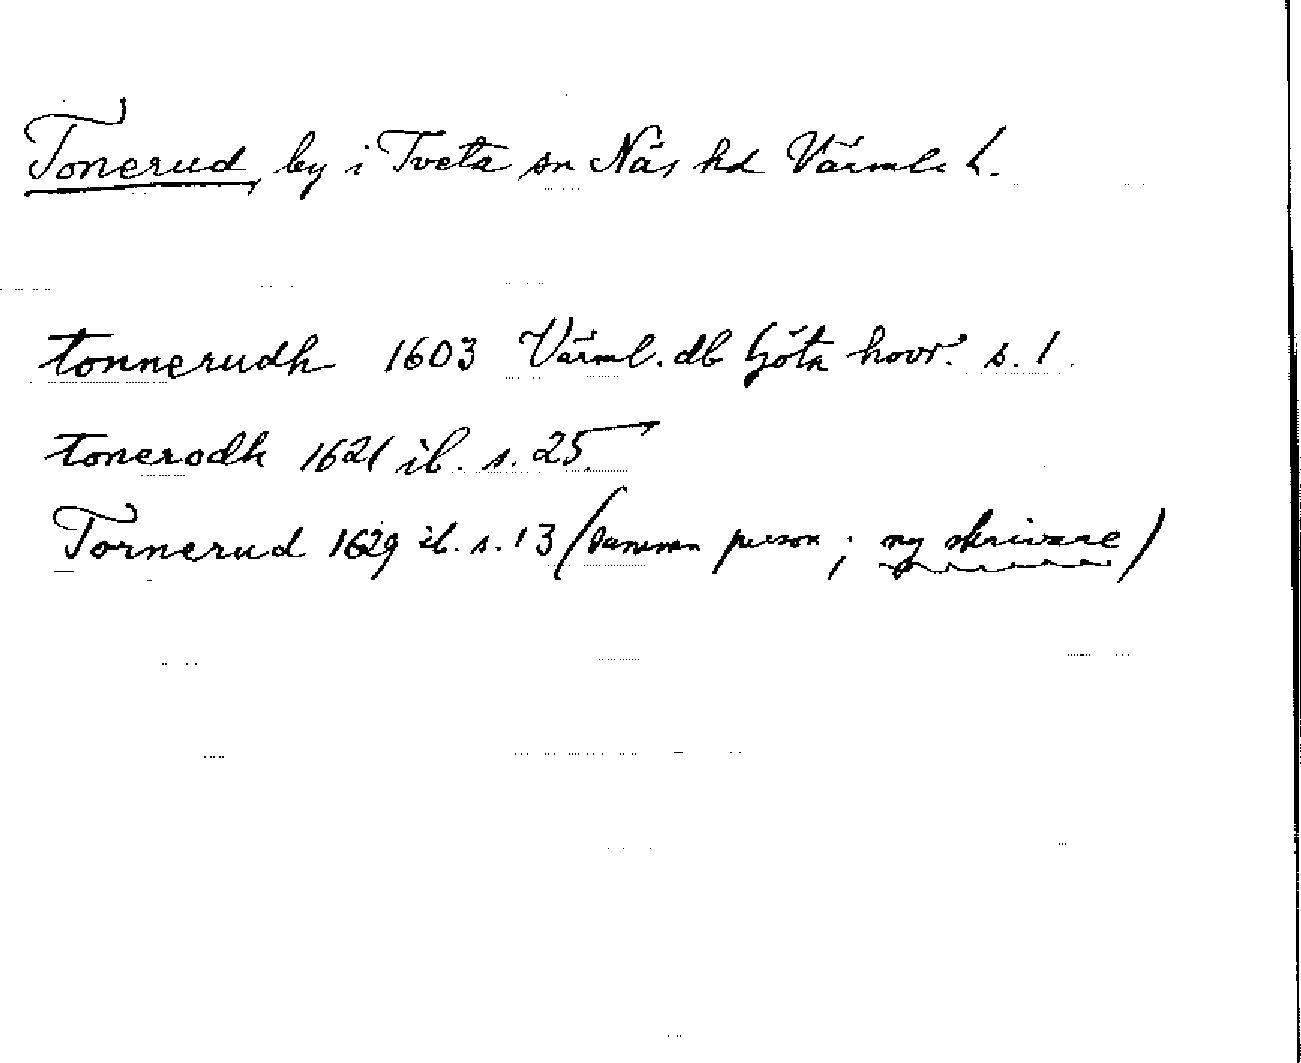 Tonerud, by i Tveta sn Näs hd Värml. l.
tonnerudh 1603 Värml. db Göta hovr. s. 1.
tonerodh 1621 ib. s. 25
Tornerud 1629 ib. s. 13 (samma person; ny skrivare)